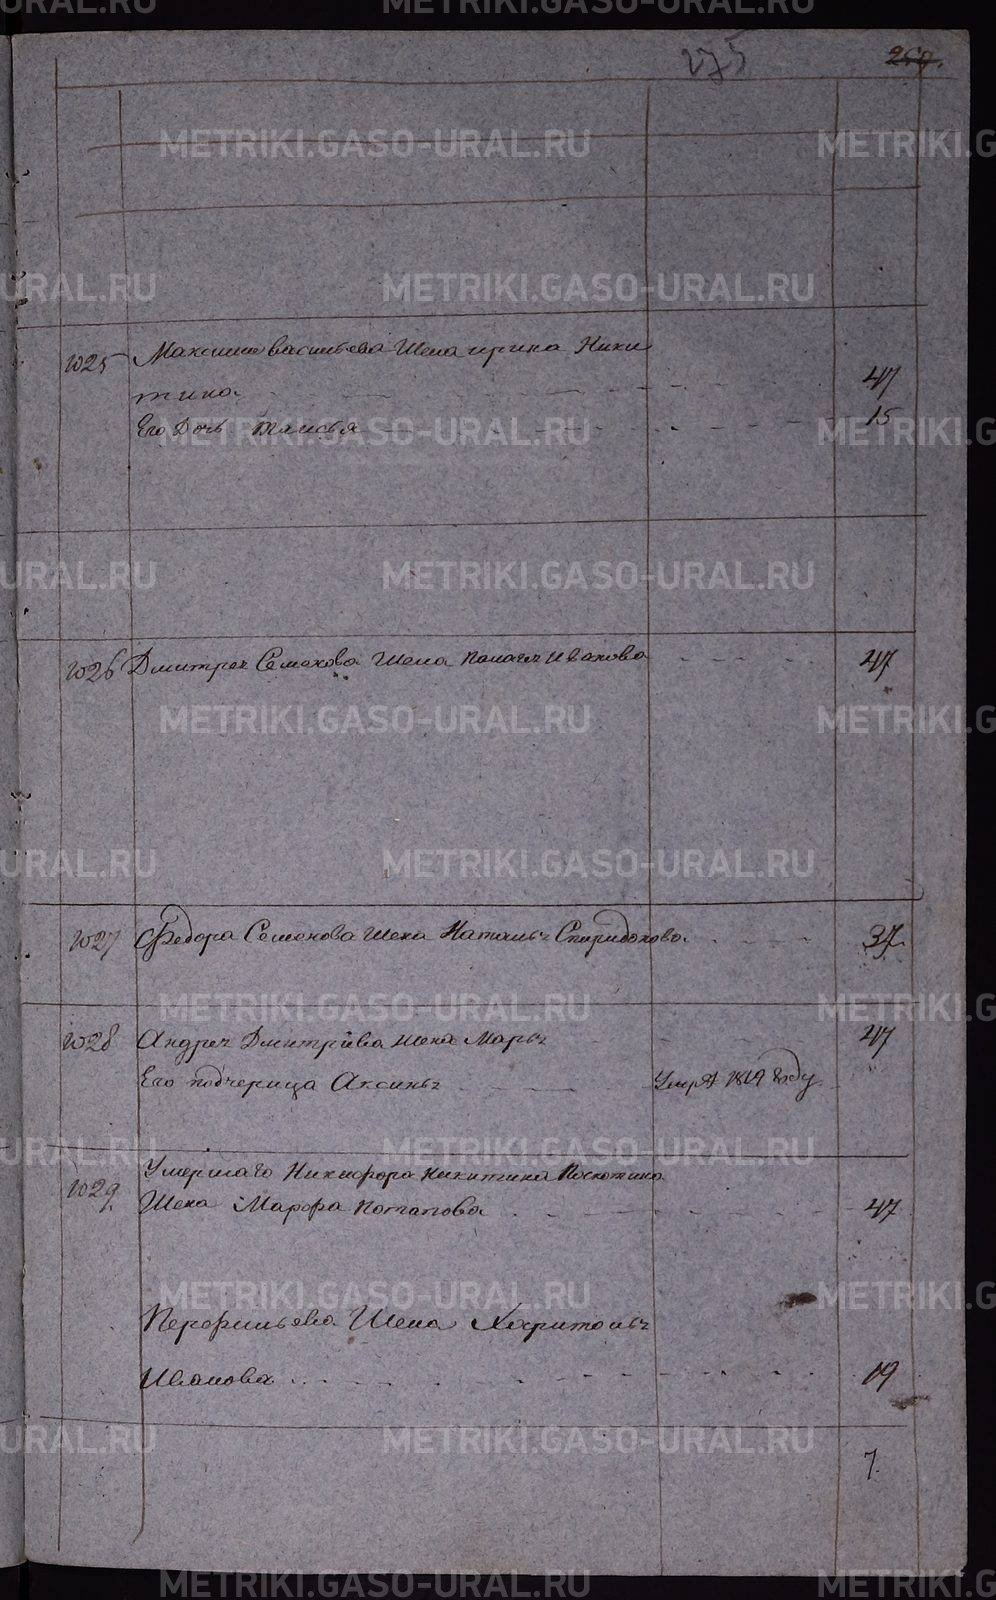 275 260.
METRIKI.GASO-URAL.RU
№25 Максима Васильева Жена ирина Ники
тина 47
Его Дочь Таисья 15
№26 Дмитрея Семенова Жена Палагея Иванова 47
№27 Федора Семенова Жена Наталья Спиридонова 37.
№28 Андрея Дмитриева жена Марья 47
Его подчерица Аксинья Умре 1819 году
№29. Умершаго Никифора Никитина Поскотина
Жена Марфа Потапова 47
Перфильева Жена Харитонья
Иванова 19
7.